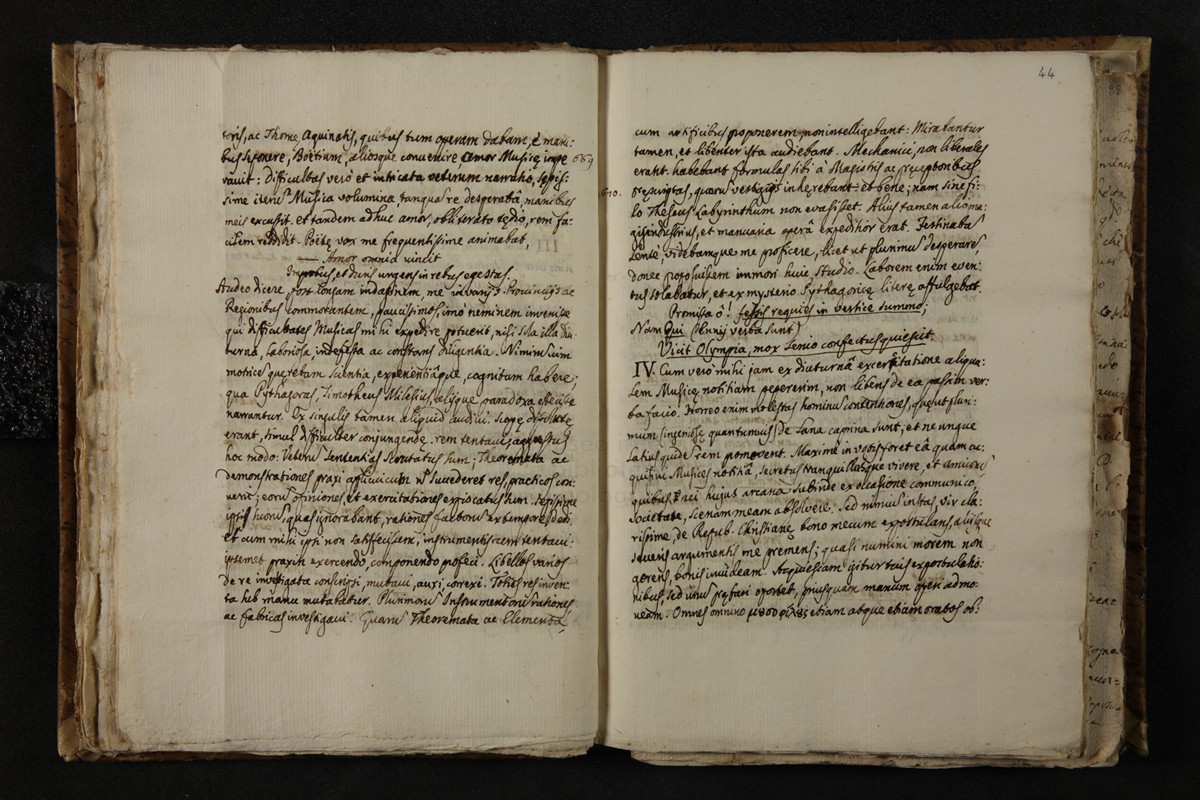 toris, ac Thomę Aquinatis, quibus tum operam dabam, è mani:
bus seponere, Boëtium, aliosque convenire amor Musicę impe 669
rauit: difficultas verò et intricata veterum narratio, sępis:
sime iterũ Musica volumina, tanquã re desperatâ, manibus
meis excussit, et tandem adhuc amor, obliterato tędio, rem fa:
cilem reddidit. Poëtę vox me frequentissime animabat,
— Amor omnia vincit
Improbus, et duris urgens in rebus egestas.
Audeo dicere, post longam indaginem, me in varijs Provincijs ac
Regionibus commorantem, paucissimos, imo neminem invenisse
qui difficultates Musicas mihi expedire potuerit, nisi sola illa diu:
turna, laboriosa, indefessa ac constans diligentia. Nimirum cum
motrice querebam scientia, experientiâque, cognitum habere;
qua Pythagoras, Timotheus Milesius, alijque paradoxa effecisse
narrantur. Ex singulis tamen aliquid audivi. Scopę dissolutę
erant, simul difficulter conjungendę. rem tentavi
hoc modo: Veterũ Sententias scrutatus sum; Theoremata ac
Demonstrationes praxi applicui: cum verò succederet res, practicos con:
veni; eorũ opiniones, et exercitationes expiscatus sum. Sępissime
ipsis suorũ, quas ignorabant, rationes factorũ ex tempore dedi,
et cum mihi ipsi non satisfecissem, instrumentis rem tentavi:
ipsemet praxin exercendo, componendo possedi. Libellos varios
de re investigata conscripsi, mutavi, auxi, correxi. Toties res inven:
ta sub manu mutabatur. Plurimorũ Instrumentorũ rationes
ac fabricas investigavi. Quarũ Theoremata ac Elementa,
44
cum artificibus proponerem, non intelligebant: Mirabantur
tamen, et libenter ista audiebant. Mechanici, non liberales
erant. habebant formulas sibi à Magistris ac pręceptoribus
670. pręscriptas, quarũ vestigijs inhęrebant: et bene; nam sine fi:
lo Theseus Labyrinthum non evasisset. Alius tamen alio ma:
gis industrius, et manuaria operâ expeditior erat. Festinabã
lentè. videbamque me proficere, licet ut plurimũ desperarẽ,
donec proposuissem immori huic studio. Laborem enim even:
tus solabatur, et ex mysterio Pythagoricę literę affulgebat.
Promissa ô! fessis requies in vertice summo;
Nam Qui (Ennij verba sunt)
Vicit Olympia, mox senio confectus quiescit.
IV. Cum vero mihi jam ex diuturnâ exercitatione aliqua:
lem Musicę notitiam pepererim, non libens de ea passim ver:
ba facio. Horreo enim molestas hominũ contentiones, quę ut pluri:
mum ingeniosę quantumvis de lana caprina sunt, et ne unque
latius quidẽ rem promovent. Maximè in votis foret eâ quam ac:
quisivi Musices notitiâ, secretus tranquillusque vivere, et amicorũ
quibus rei hujus arcana subinde ex occasione communico,
societate, scenam meam absolvere. Sed nimiũ instas, vir cla:
rissime, de Repub. Christianę bono mecum expostulans, alijsque
severis argumentis me premens; quasi numini morem non
gerens, bonis invideam. Acquiescam igitur tuis expostulatio:
nibus, sed unũ pręfari oportet, priusquam manum operi admo:
veam. Omnes omnino μουσοφίλους etiam atque etiam oratos ob: